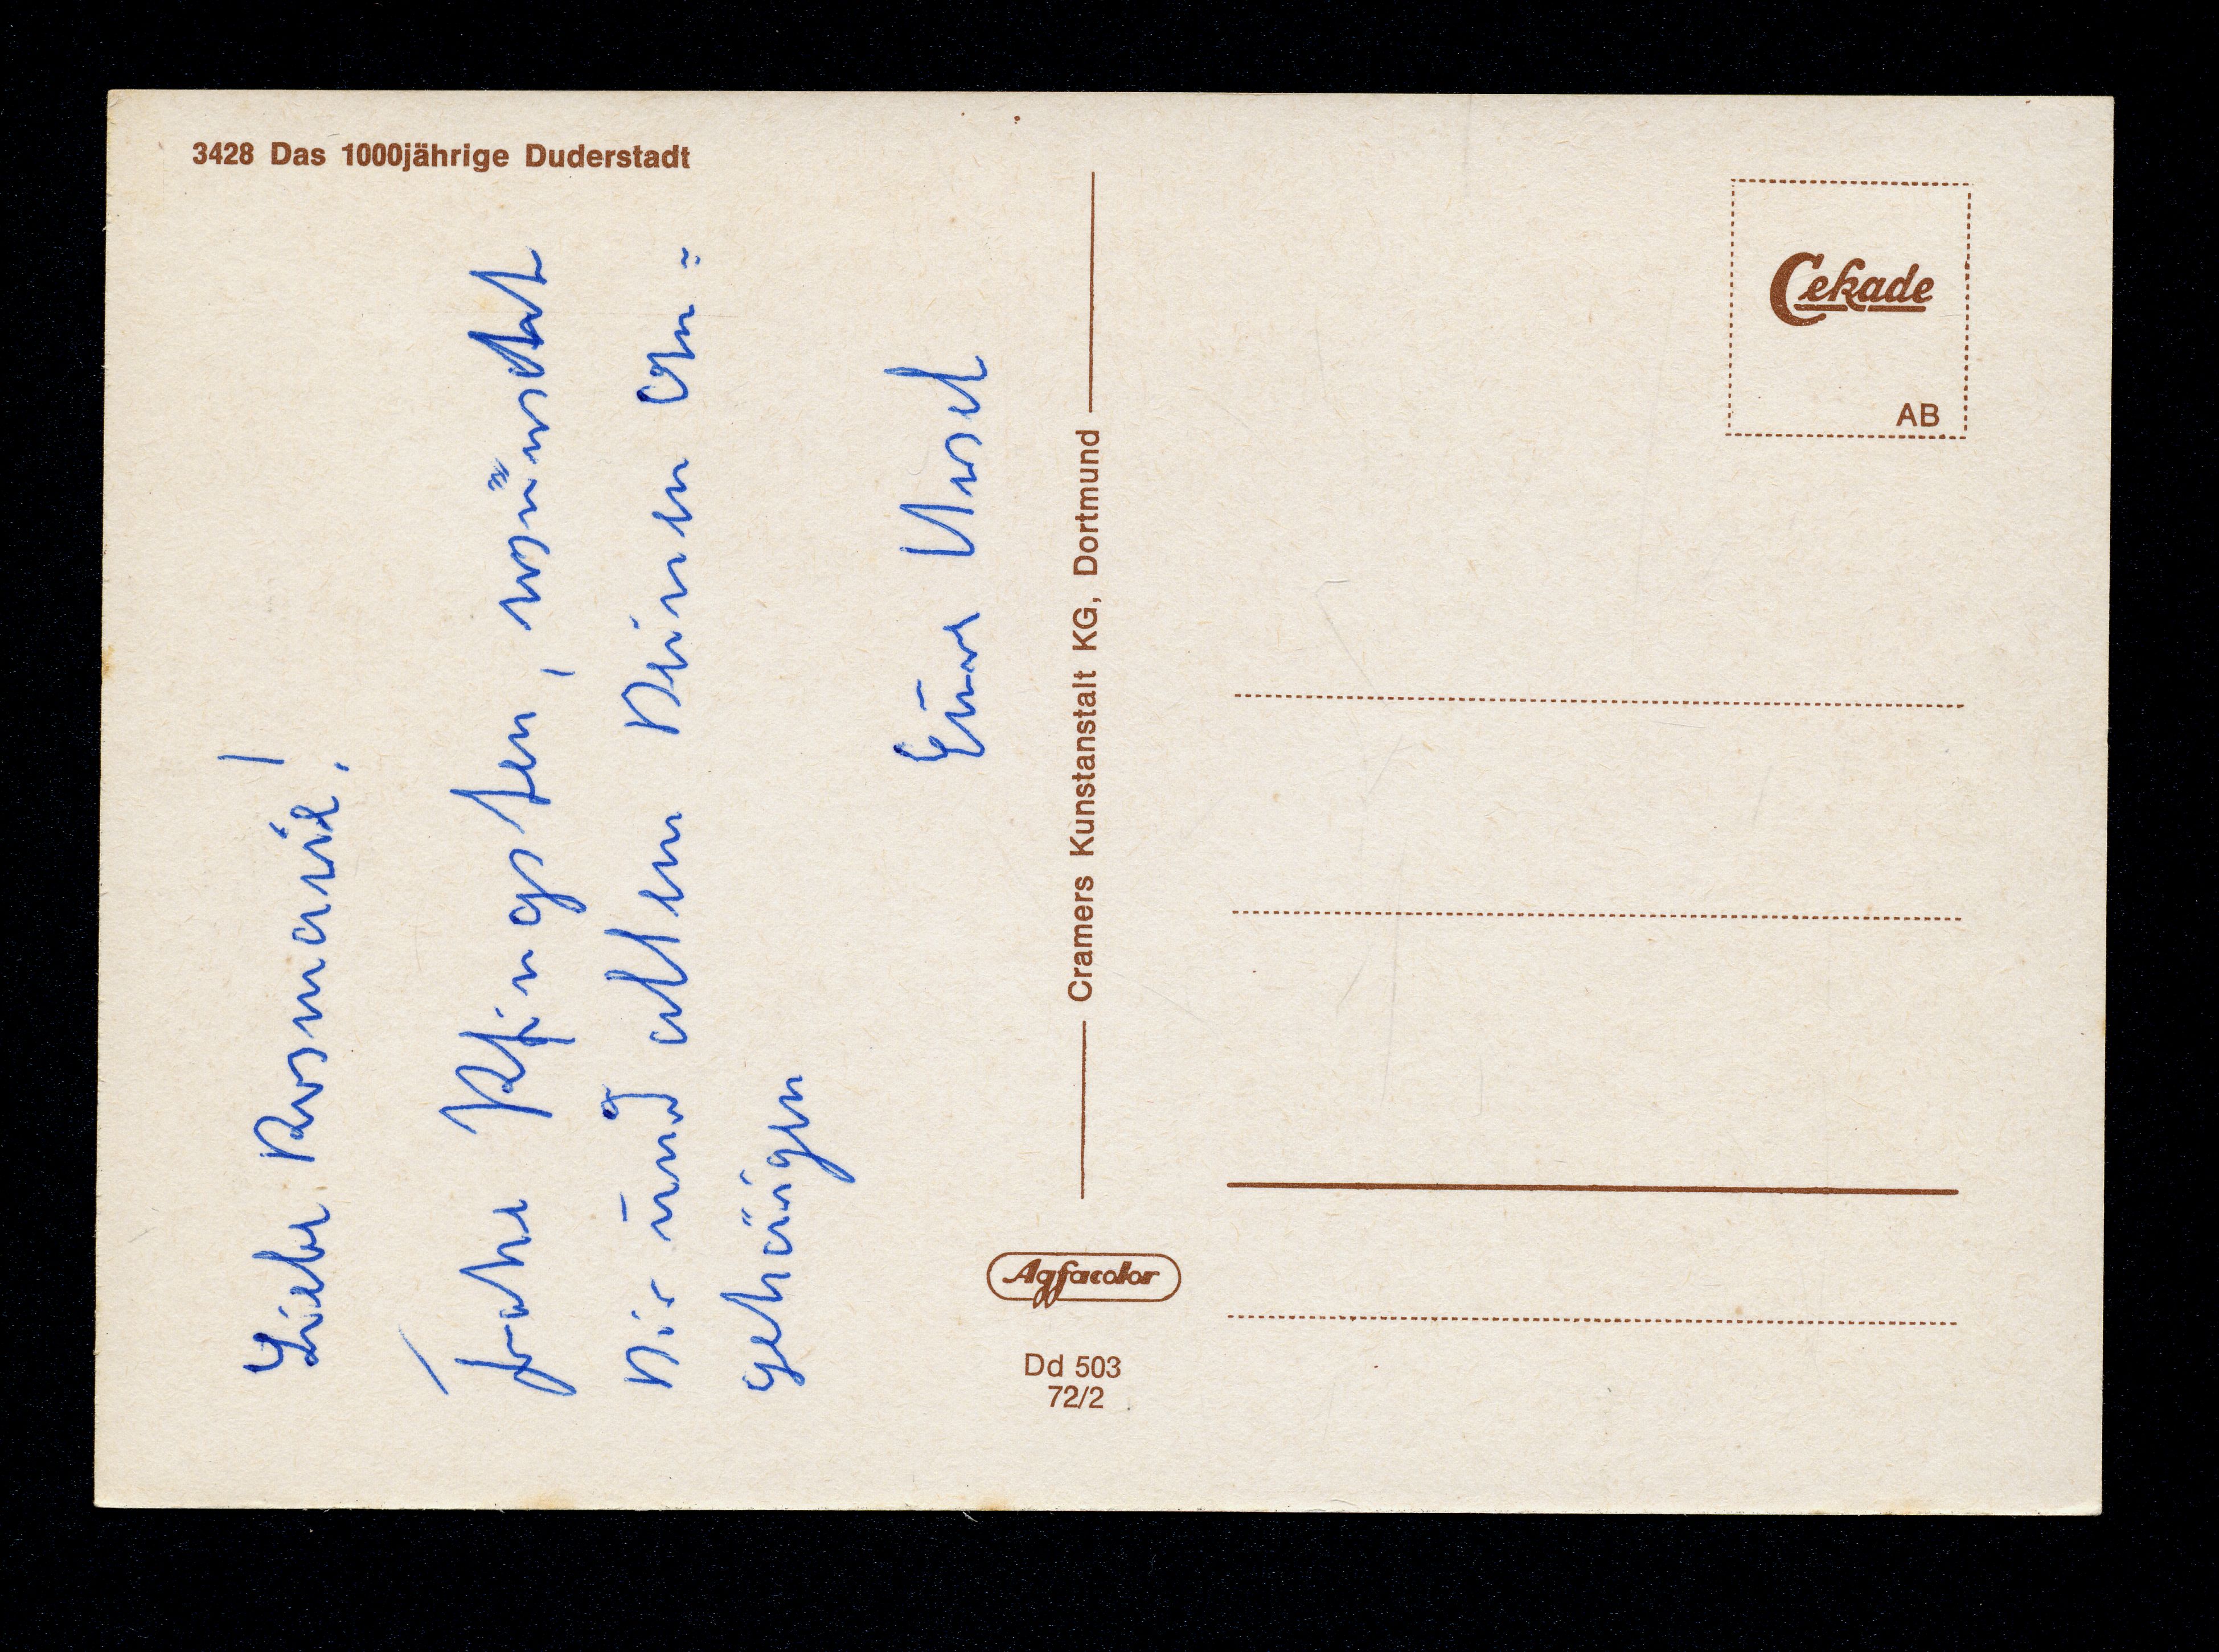 3428 Das 1000jährige Duderstadt
Liebe Rosmarie!
Frohe Pfingsten, wünscht
Dir und allen Deinen An=
gehörigen
Cramers Kunstanstalt KG, Dortmund
Cekade
AB
Agfacolor
Dd 503
72/2